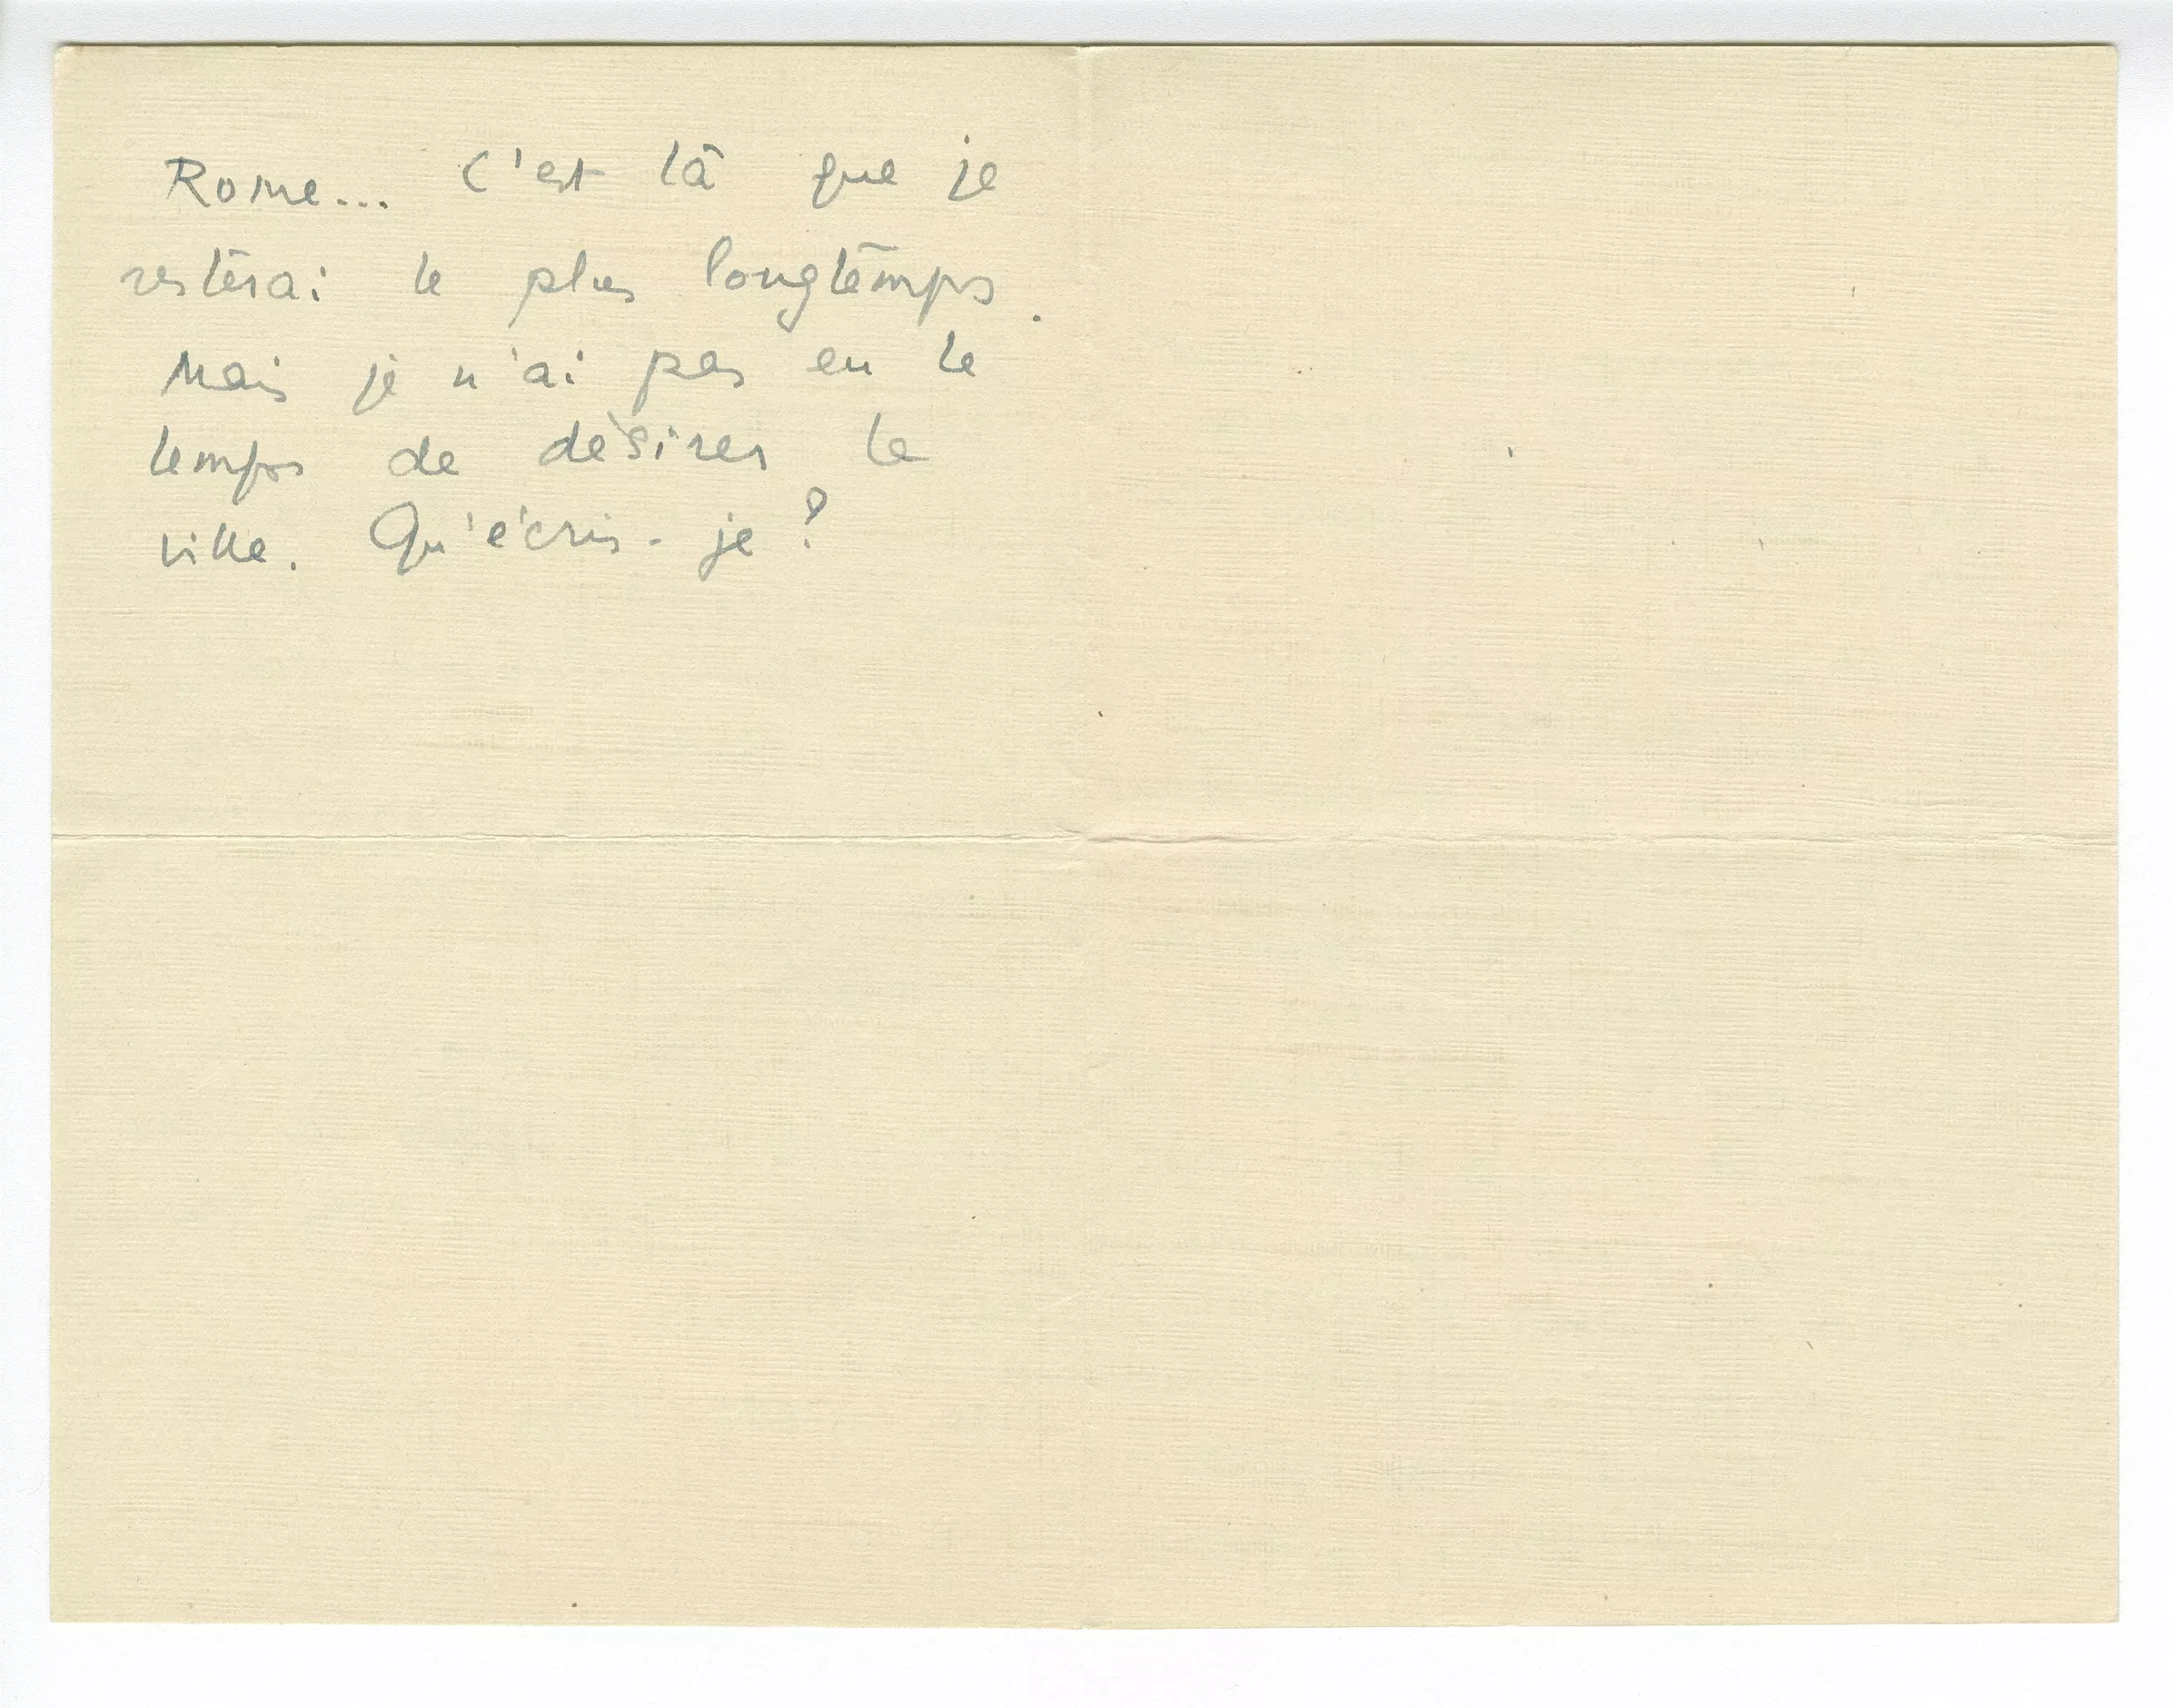 Rome... C'est là que je
resterai le plus longtemps.
Mais je n'ai pas eu le
temps de désirer la
ville. Qu'écris-je ?